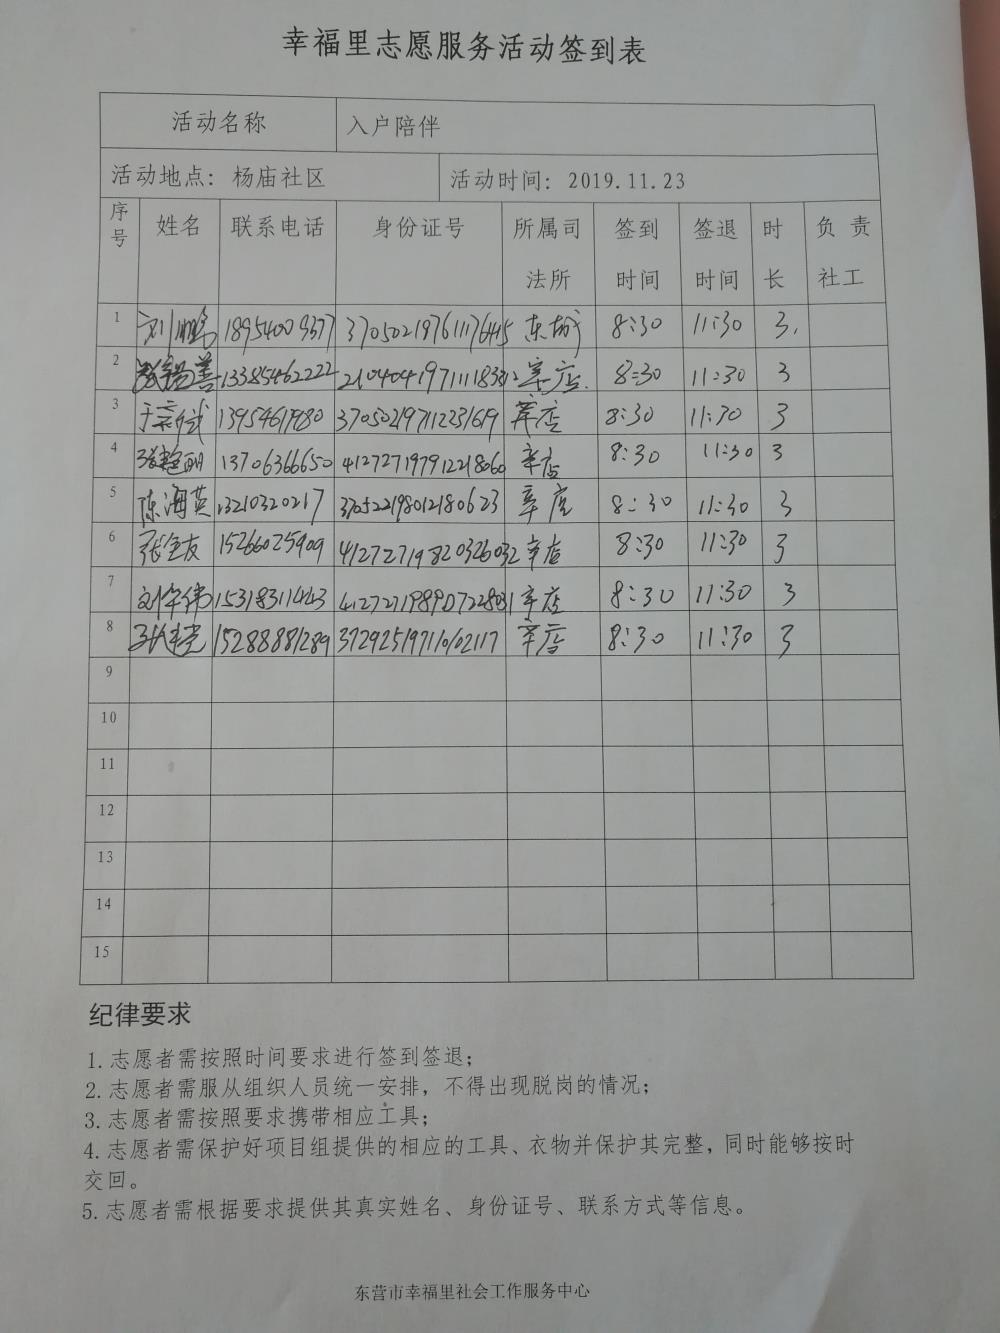 幸福里志愿服务活动签到表
活动名称 入户陪伴
活动地点: 杨庙社区 活动时间: 2019.11.23
序号 姓名 联系电话 身份证号 所属司法所 签到时间 签退时间 时长 负责社工
1 刘鹏 18954009377 东城 8:30 11:30 3
2 13385462222 辛店 8:30 11:30 3
3 辛店 8:30 11:30 3
4 13706366650 412727197912218060 辛店 8:30 11:30 3
5 陈海英 13210320217 370522198012180623 辛店 8:30 11:30 3
6 张全友 15266025909 41272719820326032 辛店 8:30 11:30 3
7 刘华伟 15318311443 辛店 8:30 11:30 3
8 15288881289 372925197110102117 辛店 8:30 11:30 3
9
10
11
12
13
14
15
纪律要求
1.志愿者需按照时间要求进行签到签退;
2.志愿者需服从组织人员统一安排，不得出现脱岗的情况;
3.志愿者需按照要求携带相应工具;
4.志愿者需保护好项目组提供的相应的工具、衣物并保护其完整，同时能够按时
交回。
5.志愿者需根据要求提供其真实姓名、身份证号、联系方式等信息。
东营市幸福里社会工作服务中心